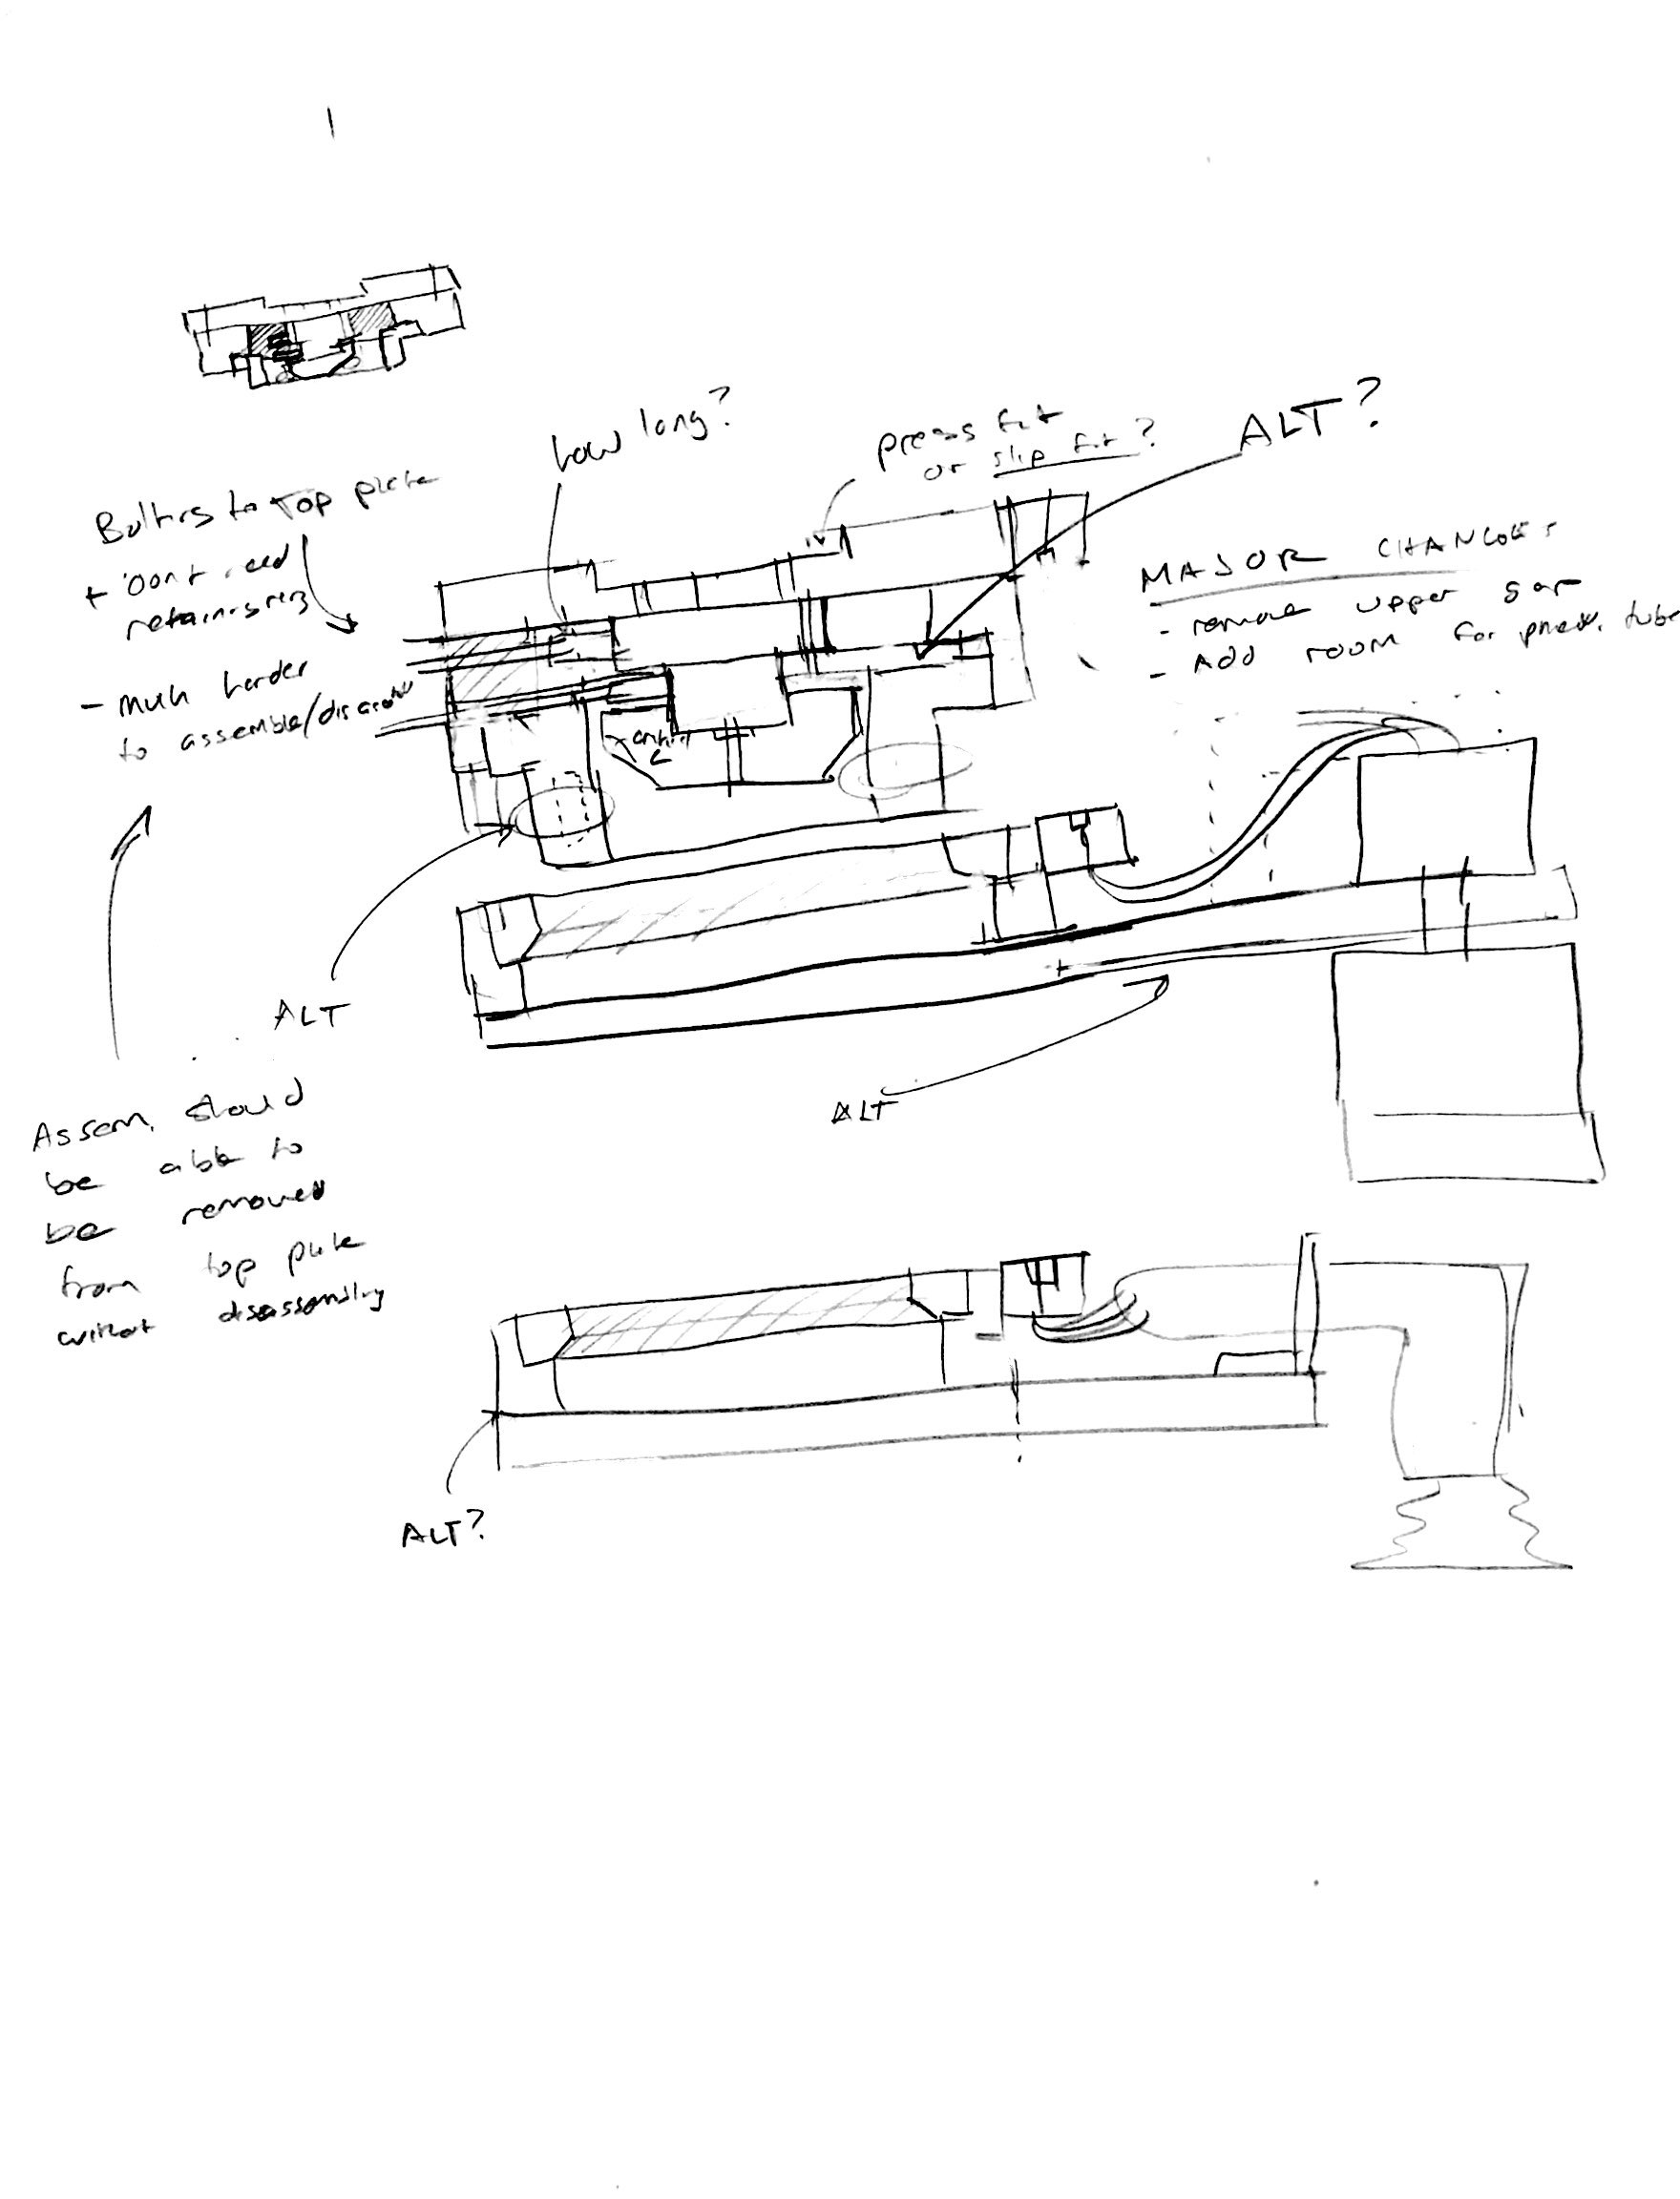 how long?
press fit
or slip fit?
ALT?
Bolting to top plate
+ Don't need
retaining ring
- much harder
to assemble/
MAJOR CHANGES
- remove upper gap
- Add room for pneu. tube
ALT
ALT
Assem. should
be able to
be removed
from top plate
without disassembling
ALT?